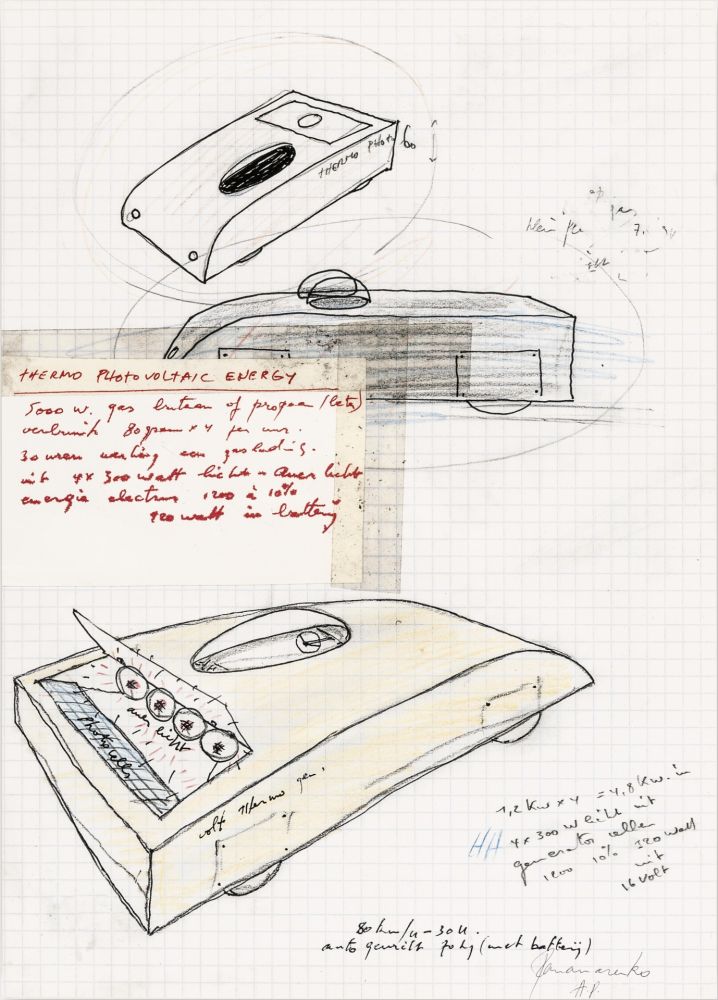 THERMO PHOTO
60
THERMO PHOTOVOLTAIC ENERGY
5000 w. gas butaan of propaan
verbruik 80 gram x 4 per uur.
30 uren werking een gaslading.
uit 4x 300 watt licht = Auer licht
energie electrun 1200 à 10%
120 watt in batterij
auer licht
Photocellen
volt Thermo gen.
1,2 Kw x 4 = 4,8 Kw. in
4x300 W licht uit
generator cellen
1200 10% 120 watt
uit
16 Volt
80 km/u - 30 u.
auto gewicht 70 kg (met batterij)
Panamarenko
A.P.